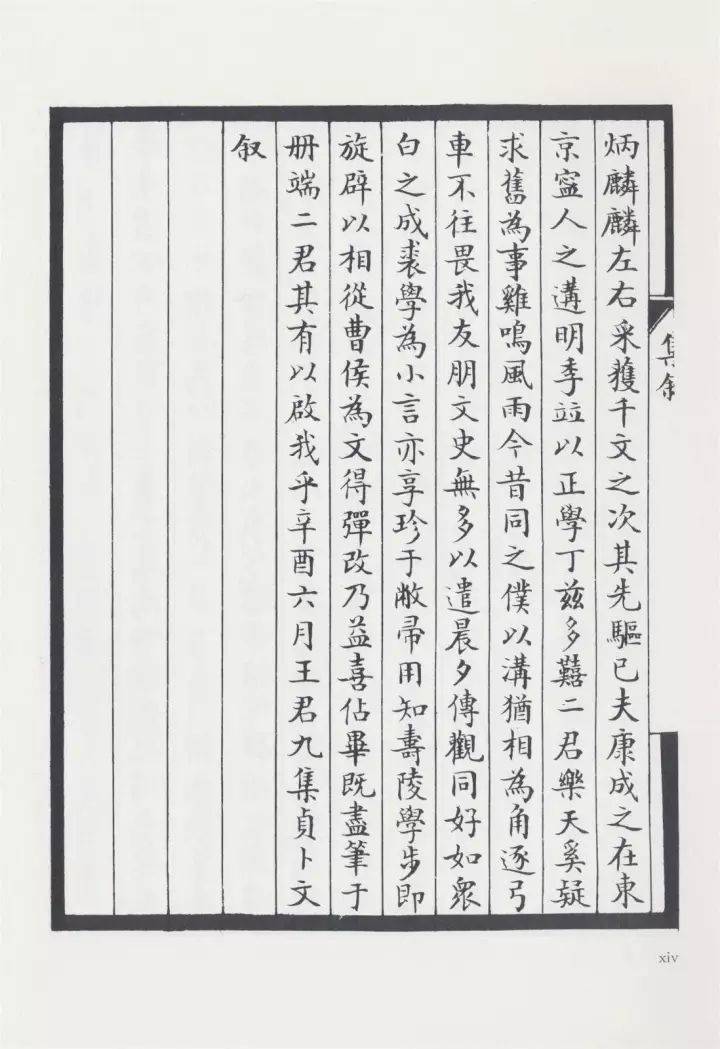 集敘
炳麟麟左右采獲千文之次其先驅已夫康成之在東
京寍人之遘明季竝以正學丁兹多囏二君樂天奚疑
求舊為事雞鳴風雨今昔同之僕以溝猶相為角逐弓
車不往畏我友朋文史無多以遣晨夕傳觀同好如衆
白之成裘學為小言亦享珍于敝帚用知壽陵學步即
旋辟以相從曹侯為文得彈改乃益喜佔畢既盡筆于
册端二君其有以啟我乎辛酉六月王君九集貞卜文
叙
xiv